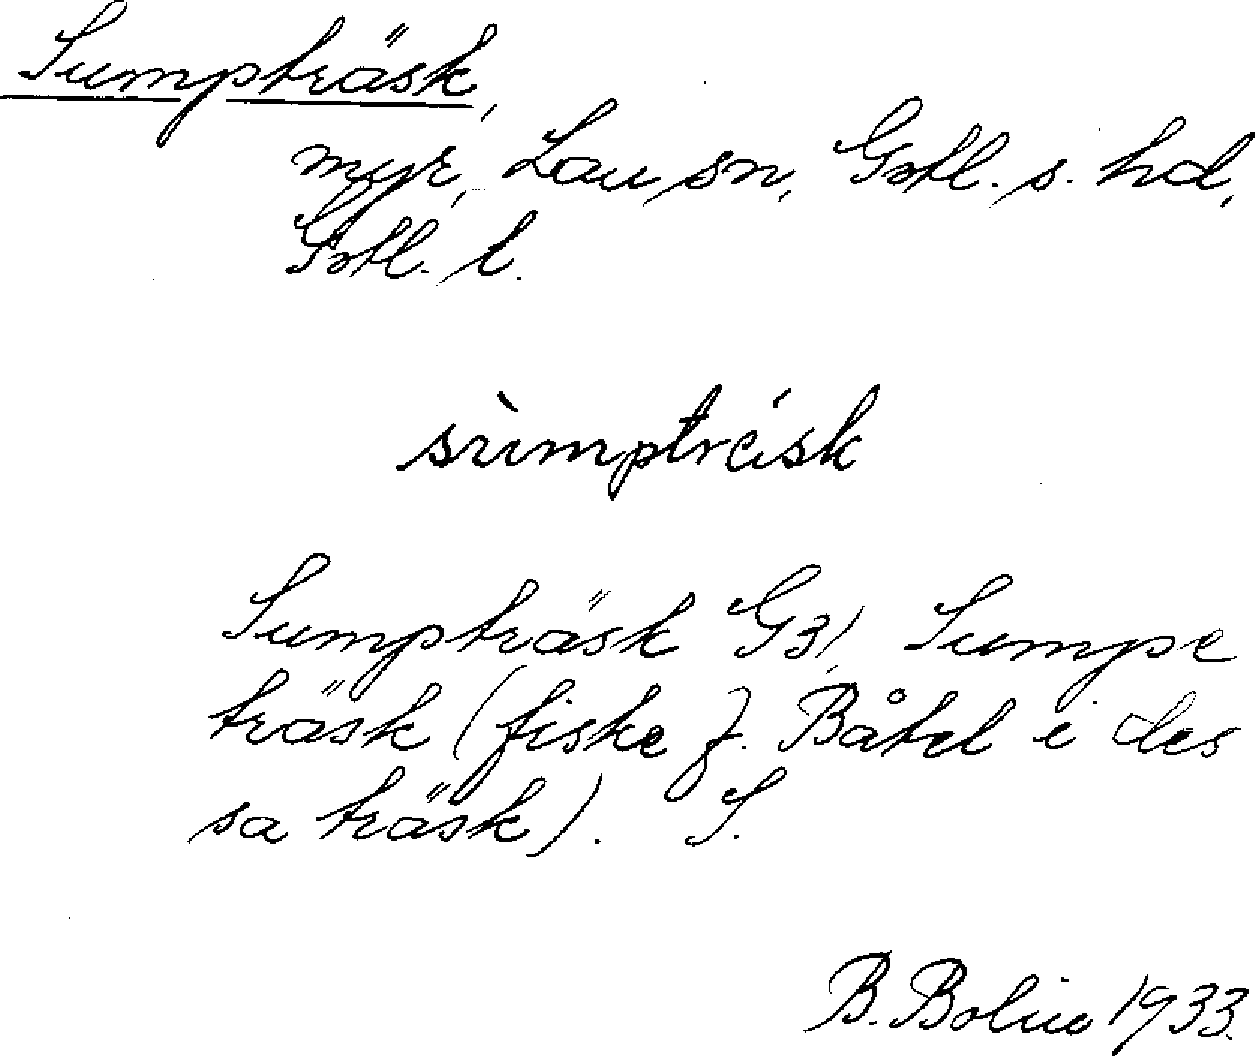 Sumpträsk,
myr, Lau sn, Gotl. s. hd,
Gotl. l.
sùmpträ́sk
Sumpträsk G3, Sumpe
träsk (fiske f. Båtel i des
sa träsk). S.
B. Bolin 1933.